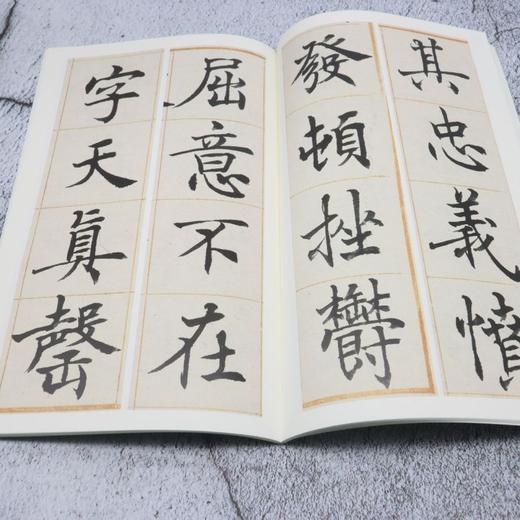 其忠義憤
發頓挫欝
屈意不在
字天真罄